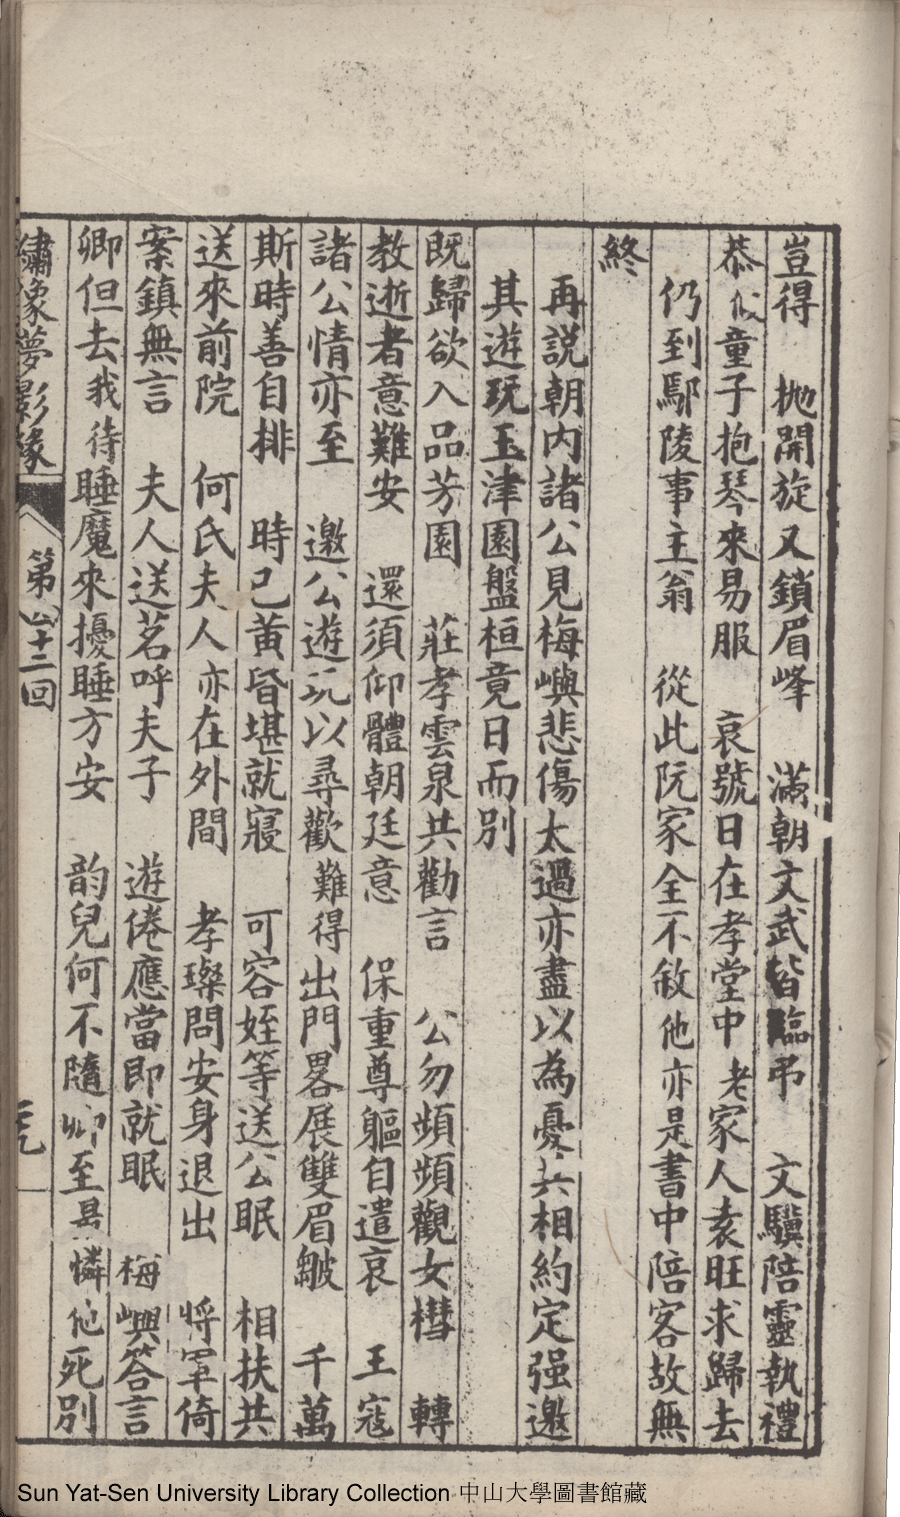 豈得　拋開旋又鎖眉峰　滿朝文武皆臨弔　文驥陪靈執禮
恭　似童子抱琴來易服　哀號日在孝堂中　老家人袁旺求歸去
仍到鄢陵事主翁　從此阮家全不敘　他亦是書中陪客故無
終
再説朝内諸公見梅嶼悲傷太過亦盡以為憂共相約定强邀
其遊玩玉津園盤桓竟日而別
既歸欲入品芳園　莊孝雲泉共勸言　公勿頻頻觀女櫘　轉
教逝者意難安　還須仰體朝廷意　保重尊軀自遣哀　王寇
諸公情亦至　邀公遊玩以尋歡　難得出門畧展雙眉皺　千萬
斯時善自排　時已黃昏堪就寢　可容姪等送公眠　相扶共
送來前院　何氏夫人亦在外間　孝璨問安身退出　將軍倚
案鎮無言　夫人送茗呼夫子　遊倦應當即就眠　梅嶼答言
卿但去　我待睡魔來擾睡方安　韵兒何不隨卿至　最憐他死別
繡像夢影緣　第四十二回
Sun Yat-Sen University Library Collection 中山大學圖書館藏